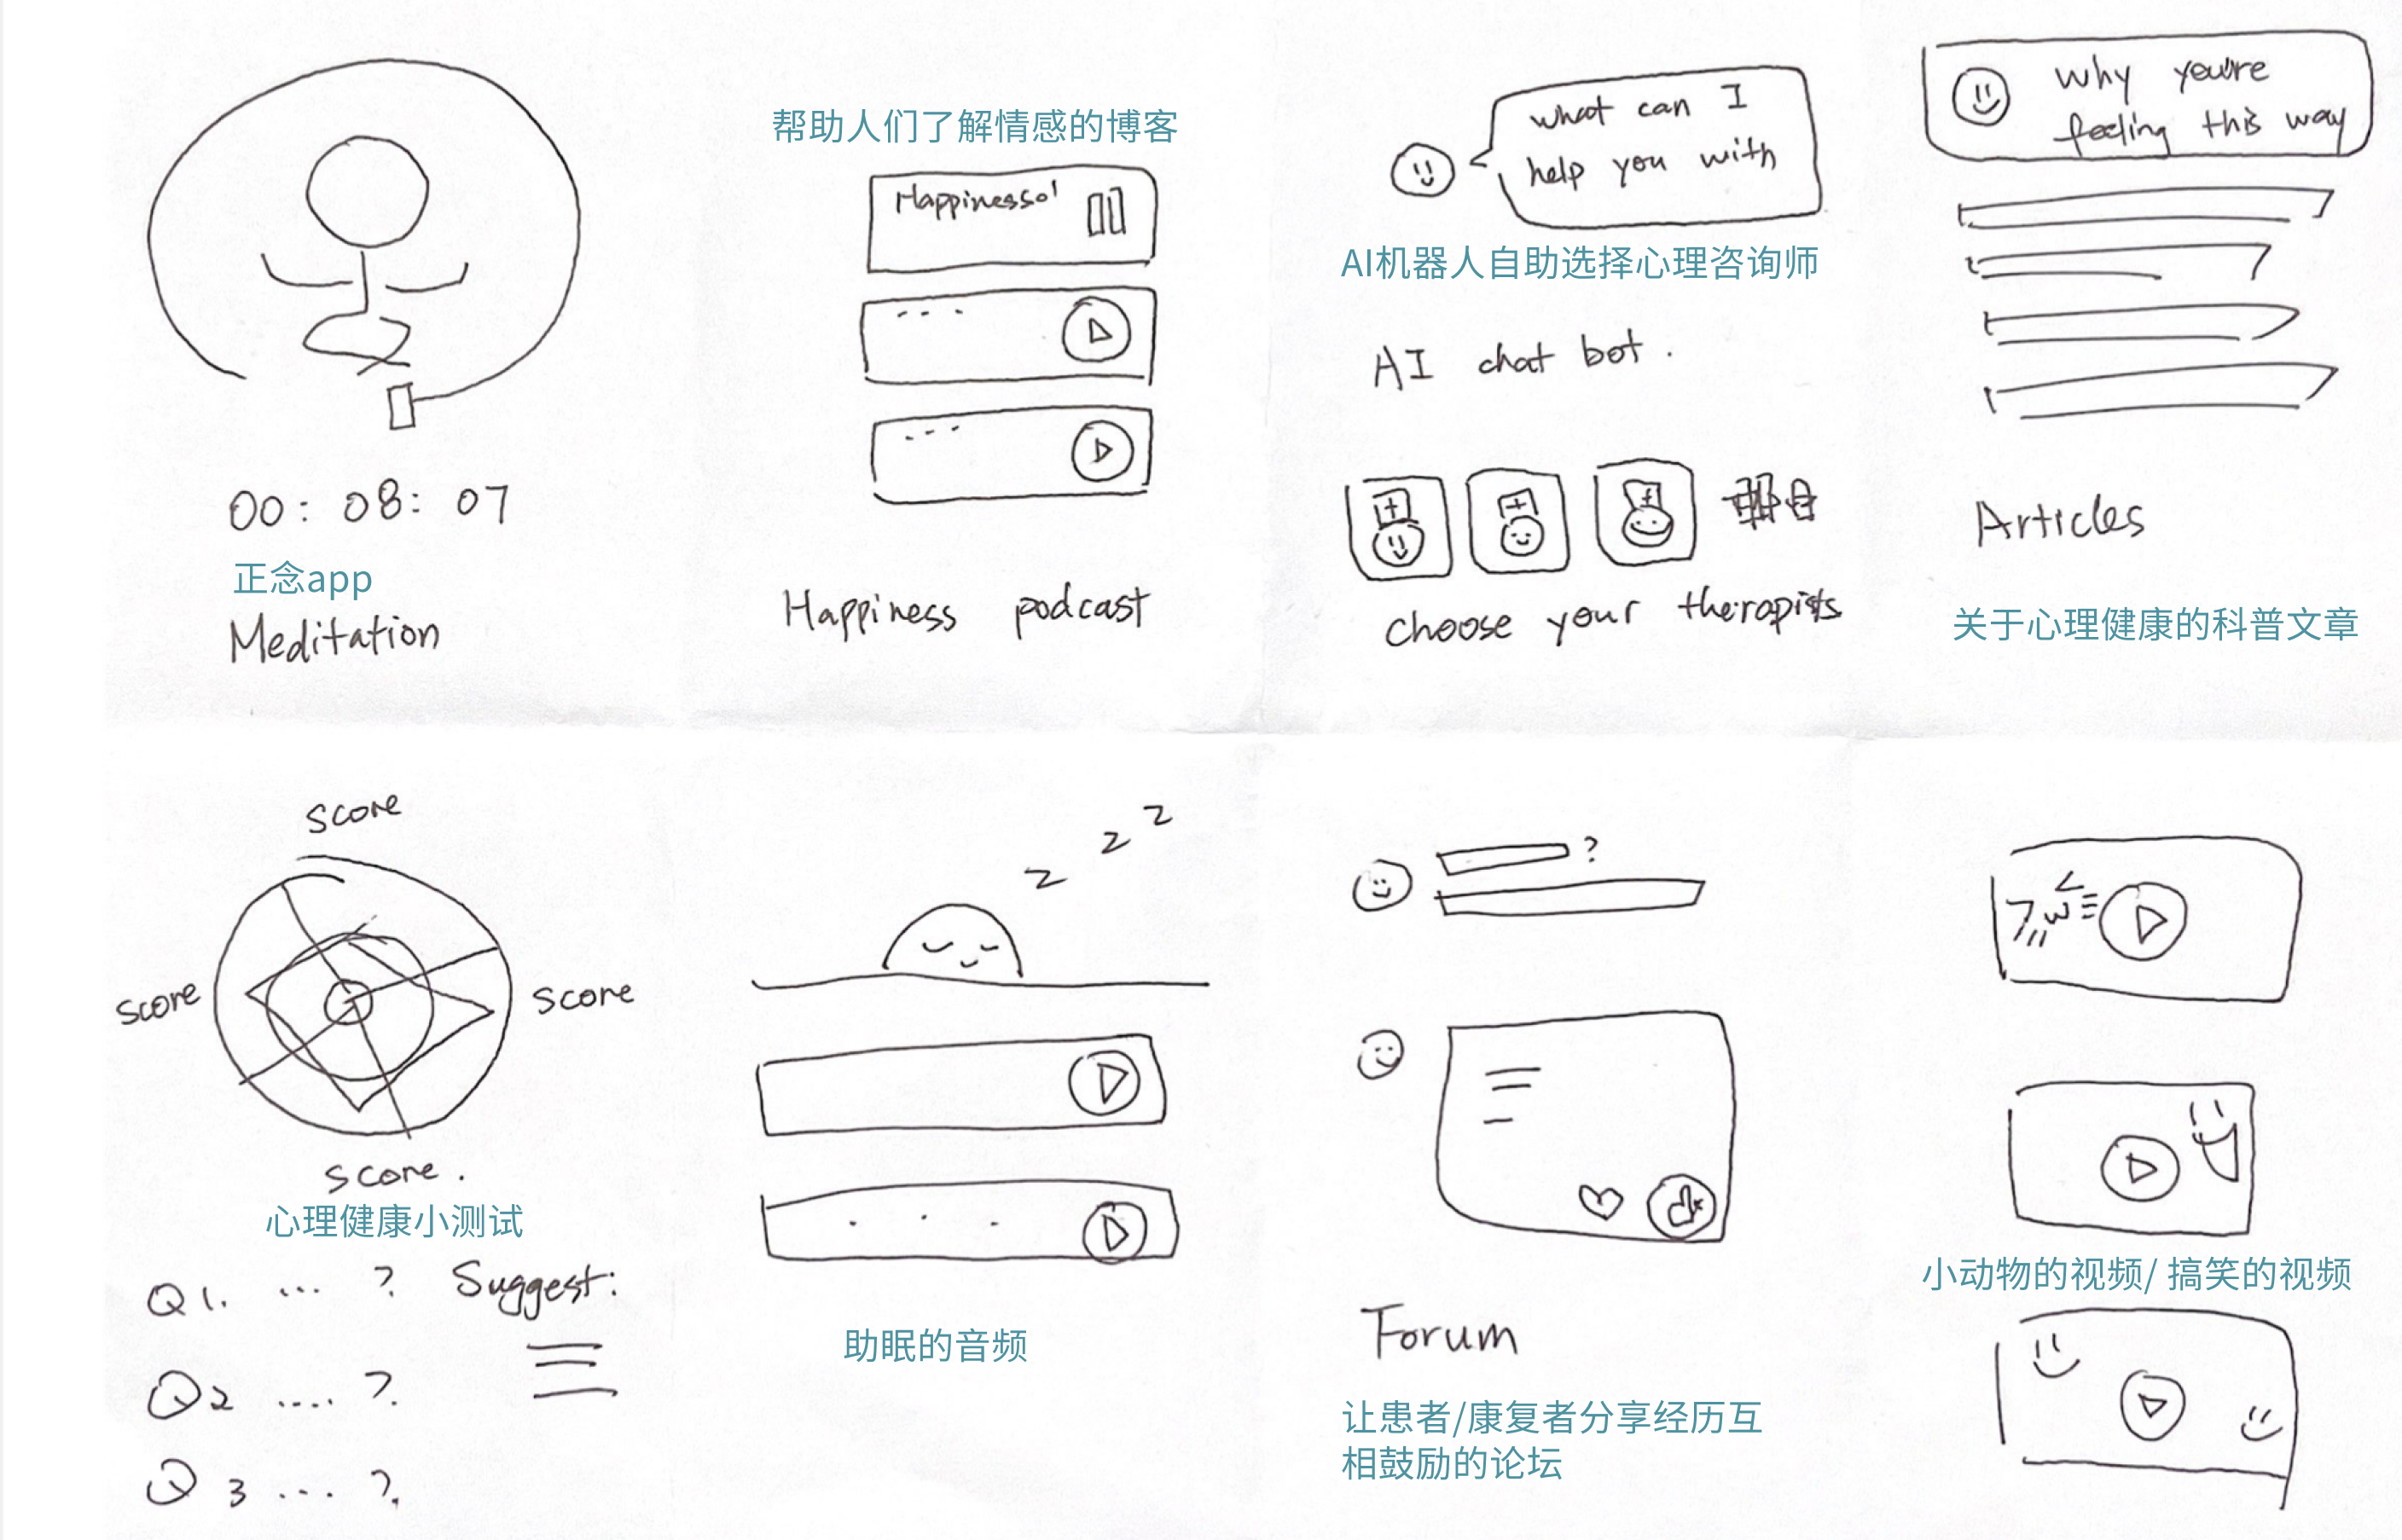 00: 08: 07
正念app
Meditation
帮助人们了解情感的博客
Happiness
Happiness podcast
what can I
help you with
AI机器人自助选择心理咨询师
AI chat bot.
choose your therapists
why you're
feeling this way
Articles
关于心理健康的科普文章
score
score
score
score.
心理健康小测试
Q1. ... ?
Suggest:
Q2 .... ?.
Q3 ... ?.
z z z
助眠的音频
?
Forum
让患者/康复者分享经历互
相鼓励的论坛
小动物的视频/ 搞笑的视频